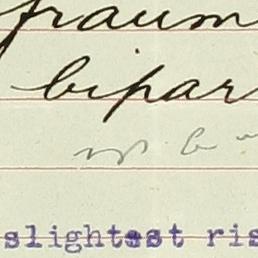 fraum
bipar
slightest ris